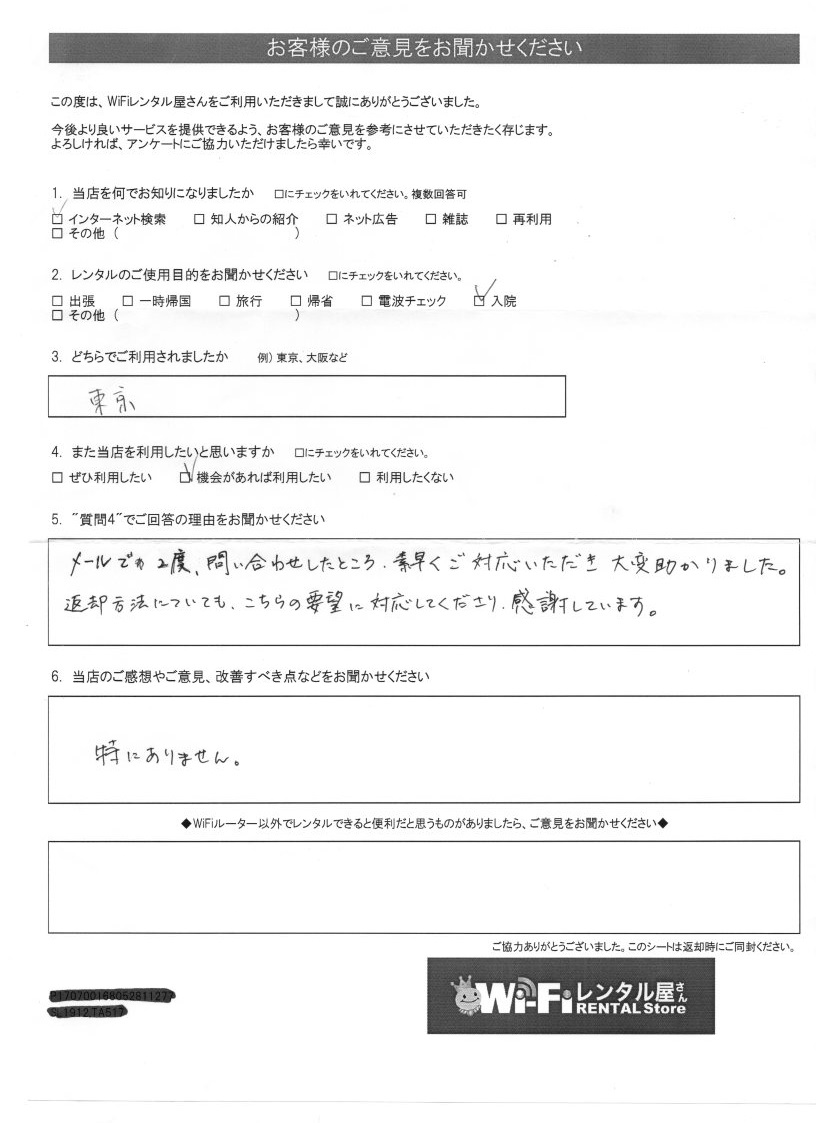 お客様のご意見をお聞かせください
この度は、WiFiレンタル屋さんをご利用いただきまして誠にありがとうございました。
今後より良いサービスを提供できるよう、お客様のご意見を参考にさせていただきたく存じます。
よろしければ、アンケートにご協力いただけましたら幸いです。
1. 当店を何でお知りになりましたか □にチェックをいれてください。複数回答可
☑ インターネット検索 □ 知人からの紹介 □ ネット広告 □ 雑誌 □ 再利用
□ その他 ( )
2. レンタルのご使用目的をお聞かせください □にチェックをいれてください。
□ 出張 □ 一時帰国 □ 旅行 □ 帰省 □ 電波チェック ☑ 入院
□ その他 ( )
3. どちらでご利用されましたか 例) 東京、大阪など
東京
4. また当店を利用したいと思いますか □にチェックをいれてください。
□ ぜひ利用したい ☑ 機会があれば利用したい □ 利用したくない
5. "質問4"でご回答の理由をお聞かせください
メールで 2度、問い合わせしたところ、素早くご対応いただき 大変助かりました。
返却方法についても、こちらの要望に対応してくださり、感謝しています。
6. 当店のご感想やご意見、改善すべき点などをお聞かせください
特にありません。
◆WiFiルーター以外でレンタルできると便利だと思うものがありましたら、ご意見をお聞かせください◆
ご協力ありがとうございました。このシートは返却時にご同封ください。
Wi-Fiレンタル屋さん
RENTAL Store